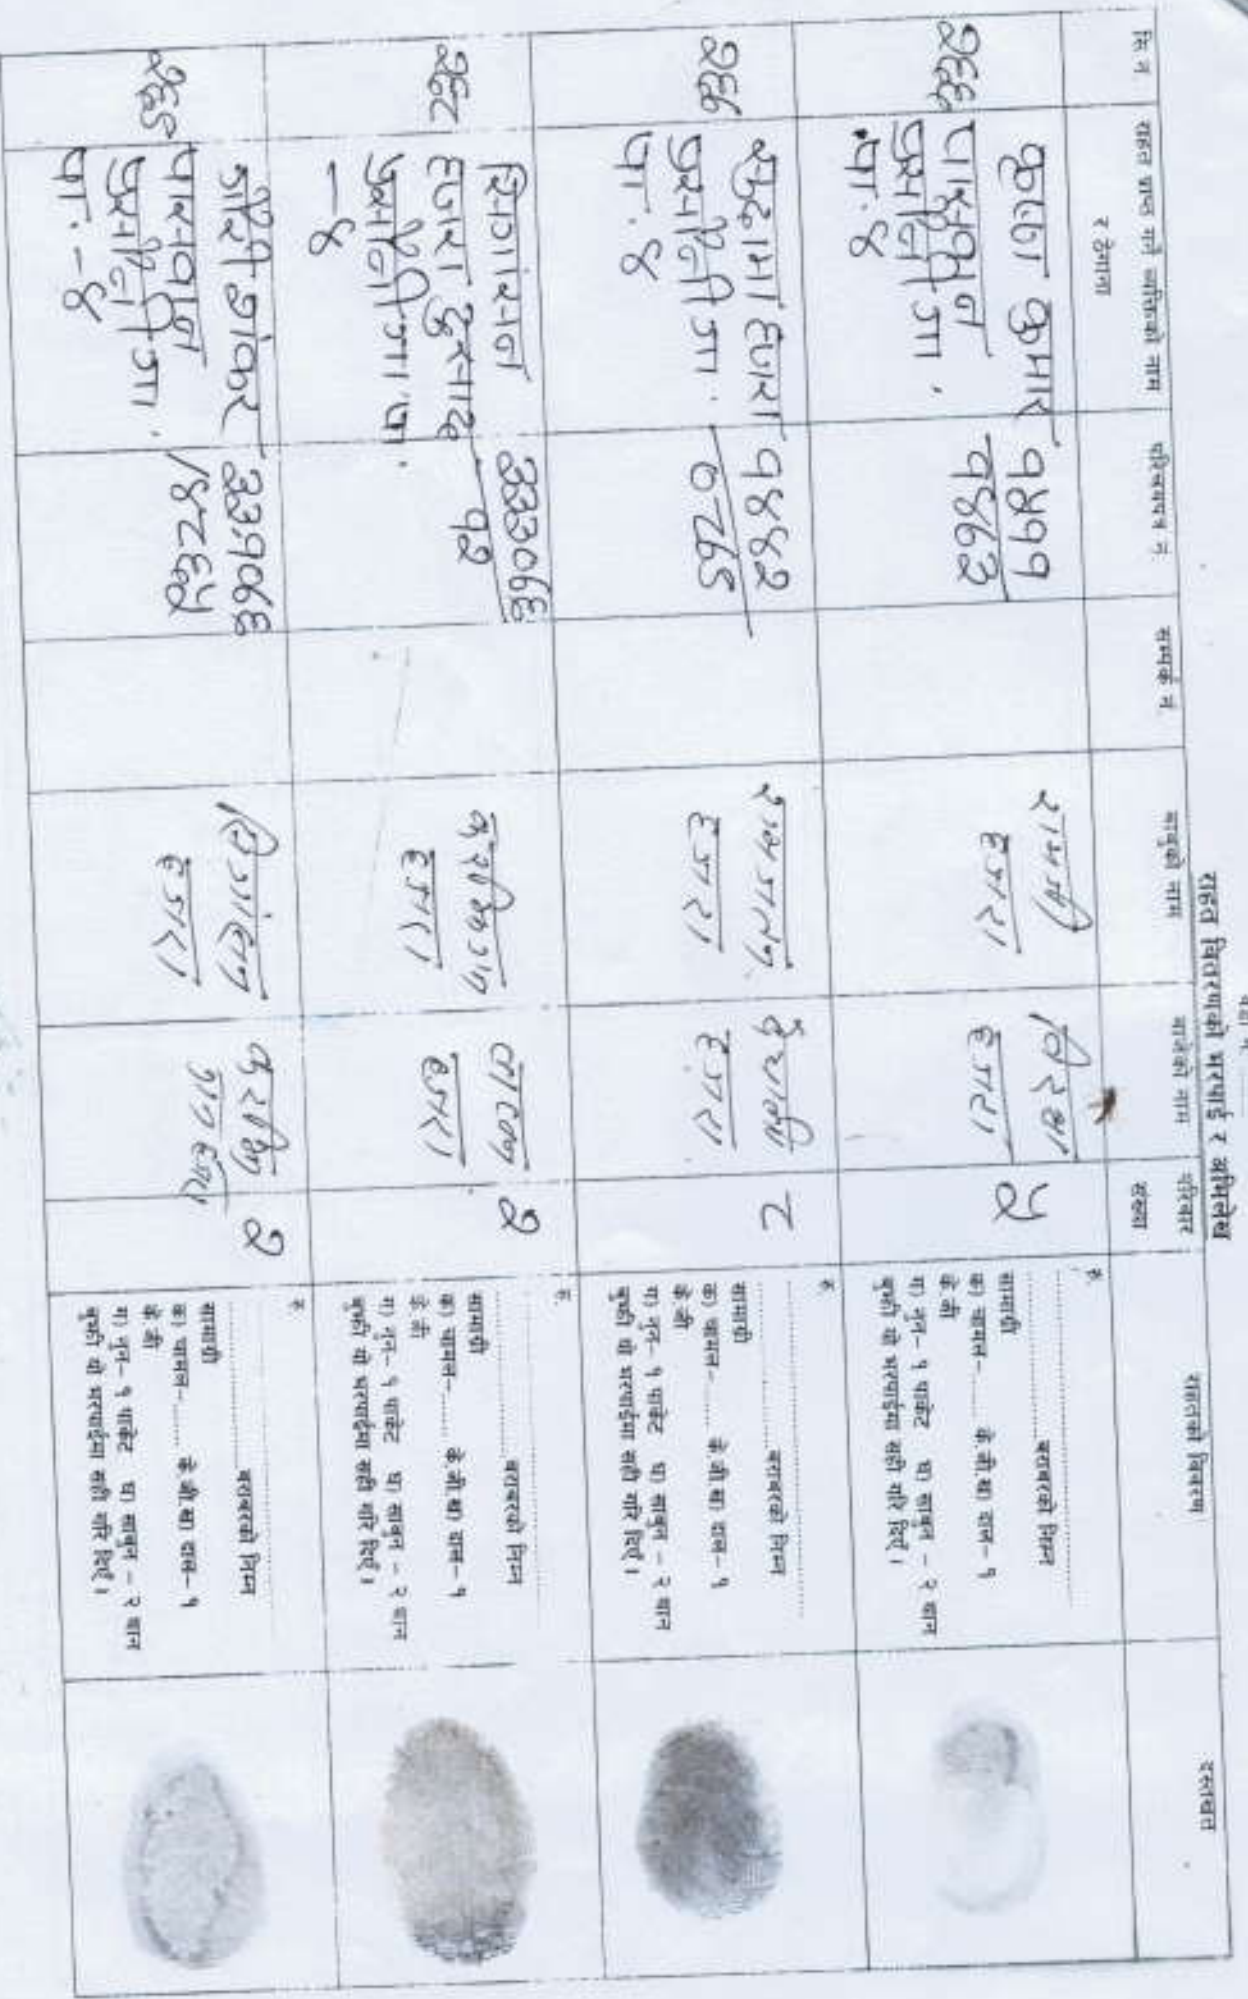 राहत वितरणको भरपाई र अभिलेख
सि.नं
राहत प्राप्त गर्ने व्यक्तिको नाम
र ठेगाना
परिचयपत्र नं
सम्पर्क नं.
बाबुको नाम
बाजेको नाम
परिवार
संख्या
राहतको विवरण
दस्तखत
२६६
कुमार
पा. ४
१५११
१४७२
रामजी
हजरा
हजरा
५
रु.
बराबरको निम्न
सामाग्री
क) चामल-...... के.जी.ख) दाल- १
के.जी
ग) नुन- १ पाकेट घ) साबुन - २ थान
बुझी यो भरपाईमा सही गरि दिएँ ।
२६७
सुदामा हजरा
पर्सौनी गा.
पा. ४
१४४२
०८७९
हजरा
हजरा
८
रु.
बराबरको निम्न
सामाग्री
क) चामल-...... के.जी.ख) दाल- १
के.जी
ग) नुन- १ पाकेट घ) साबुन - २ थान
बुझी यो भरपाईमा सही गरि दिएँ ।
२६८
हजरा दुसाध
पर्सौनी गा.पा.
-४
३३३०७६
१२
हजरा
हजरा
२
रु.
बराबरको निम्न
सामाग्री
क) चामल-...... के.जी.ख) दाल- १
के.जी
ग) नुन- १ पाकेट घ) साबुन - २ थान
बुझी यो भरपाईमा सही गरि दिएँ ।
२६९
गौरी शंकर
पासवान
पर्सौनी गा.
पा. -४
३३१०७६
/४८६५
हजरा
२
रु.
बराबरको निम्न
सामाग्री
क) चामल-...... के.जी.ख) दाल- १
के.जी
ग) नुन- १ पाकेट घ) साबुन - २ थान
बुझी यो भरपाईमा सही गरि दिएँ ।